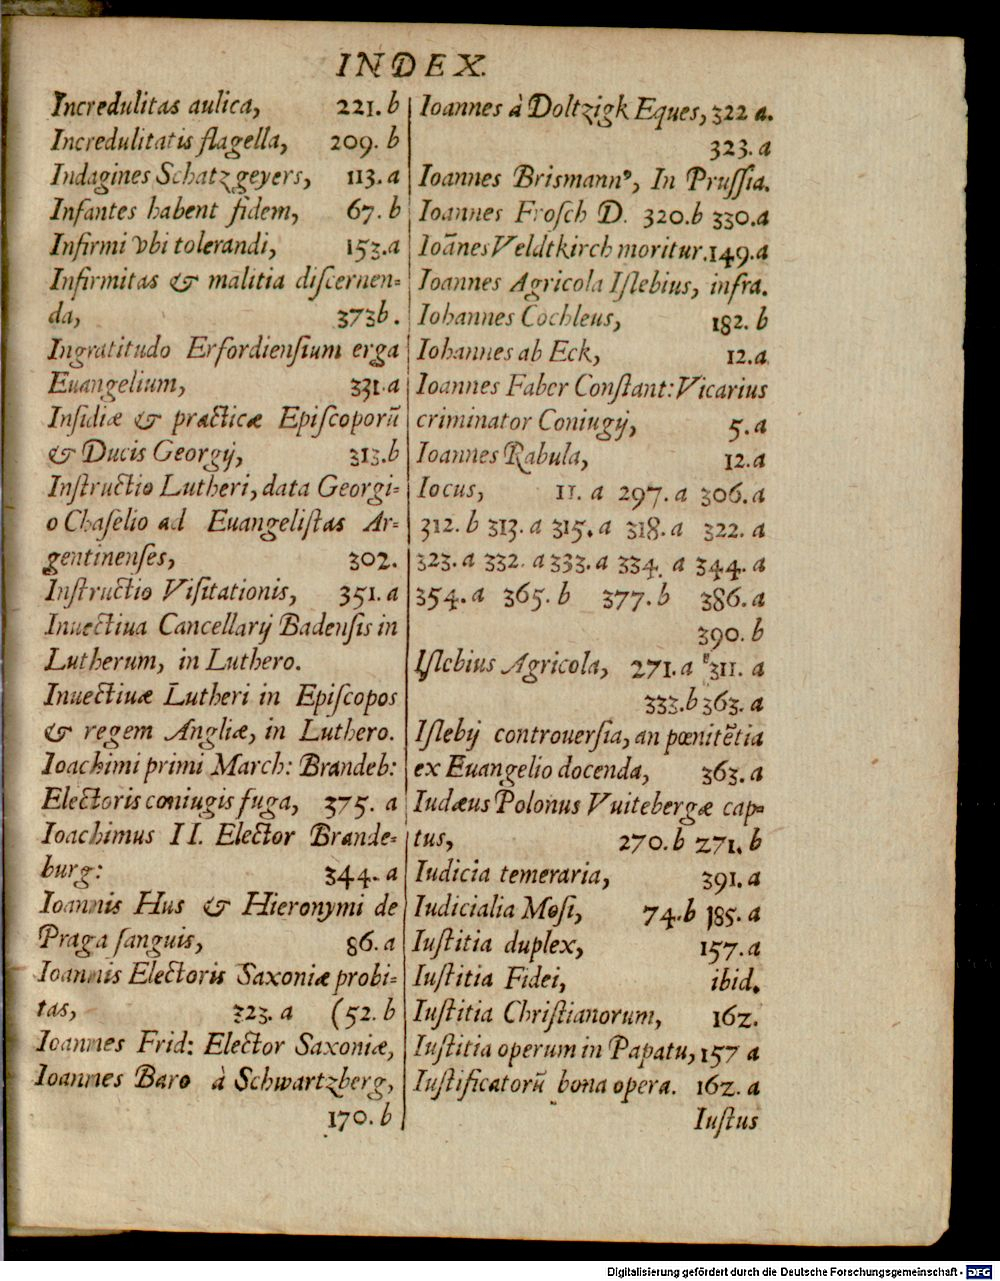 INDEX.
Incredulitas aulica, 221. b
Incredulitatis flagella, 209. b
Indagines Schatzgeyers, 113. a
Infantes habent fidem, 67. b
Infirmi vbi tolerandi, 153. a
Infirmitas & malitia diſcernen-
da, 373 b.
Ingratitudo Erfordienſium erga
Euangelium, 331. a
Inſidiæ & practicæ Epiſcoporū
& Ducis Georgij, 313. b
Inſtructio Lutheri, data Georgi-
o Chaſelio ad Euangeliſtas Ar-
gentinenſes, 302.
Inſtructio Viſitationis, 351. a
Inuectiua Cancellarij Badenſis in
Lutherum, in Luthero.
Inuectiuæ Lutheri in Epiſcopos
& regem Angliæ, in Luthero.
Ioachimi primi March: Brandeb:
Electoris coniugis fuga, 375. a
Ioachimus II. Elector Brande-
burg: 344. a
Ioannis Hus & Hieronymi de
Praga ſanguis, 86. a
Ioannis Electoris Saxoniæ probi-
tas, 323. a (52. b
Ioannes Frid: Elector Saxoniæ,
Ioannes Baro à Schwartzberg,
170. b
Ioannes à Doltzigk Eques, 322 a.
323. a
Ioannes Brismannꝰ, In Pruſſia.
Ioannes Froſch D. 320. b 330. a
Ioānes Veldtkirch moritur. 149. a
Ioannes Agricola Iſlebius, infra.
Iohannes Cochleus, 182. b
Iohannes ab Eck, 12. a
Ioannes Faber Conſtant: Vicarius
criminator Coniugij, 5. a
Ioannes Rabula, 12. a
Iocus, 11. a 297. a 306. a
312. b 313. a 315. a 318. a 322. a
323. a 332. a 333. a 334. a 344. a
354. a 365. b 377. b 386. a
390. b
Iſlebius Agricola, 271. a 311. a
333. b 363. a
Iſlebij controuerſia, an pœnitētia
ex Euangelio docenda, 363. a
Iudæus Polonus Vuitebergæ cap-
tus, 270. b 271. b
Iudicia temeraria, 391. a
Iudicialia Moſi, 74. b 185. a
Iuſtitia duplex, 157. a
Iuſtitia Fidei, ibid.
Iuſtitia Chriſtianorum, 162.
Iuſtitia operum in Papatu, 157 a
Iuſtificatorū bona opera. 162. a
Iuſtus
Digitalisierung gefördert durch die Deutsche Forschungsgemeinschaft - DFG